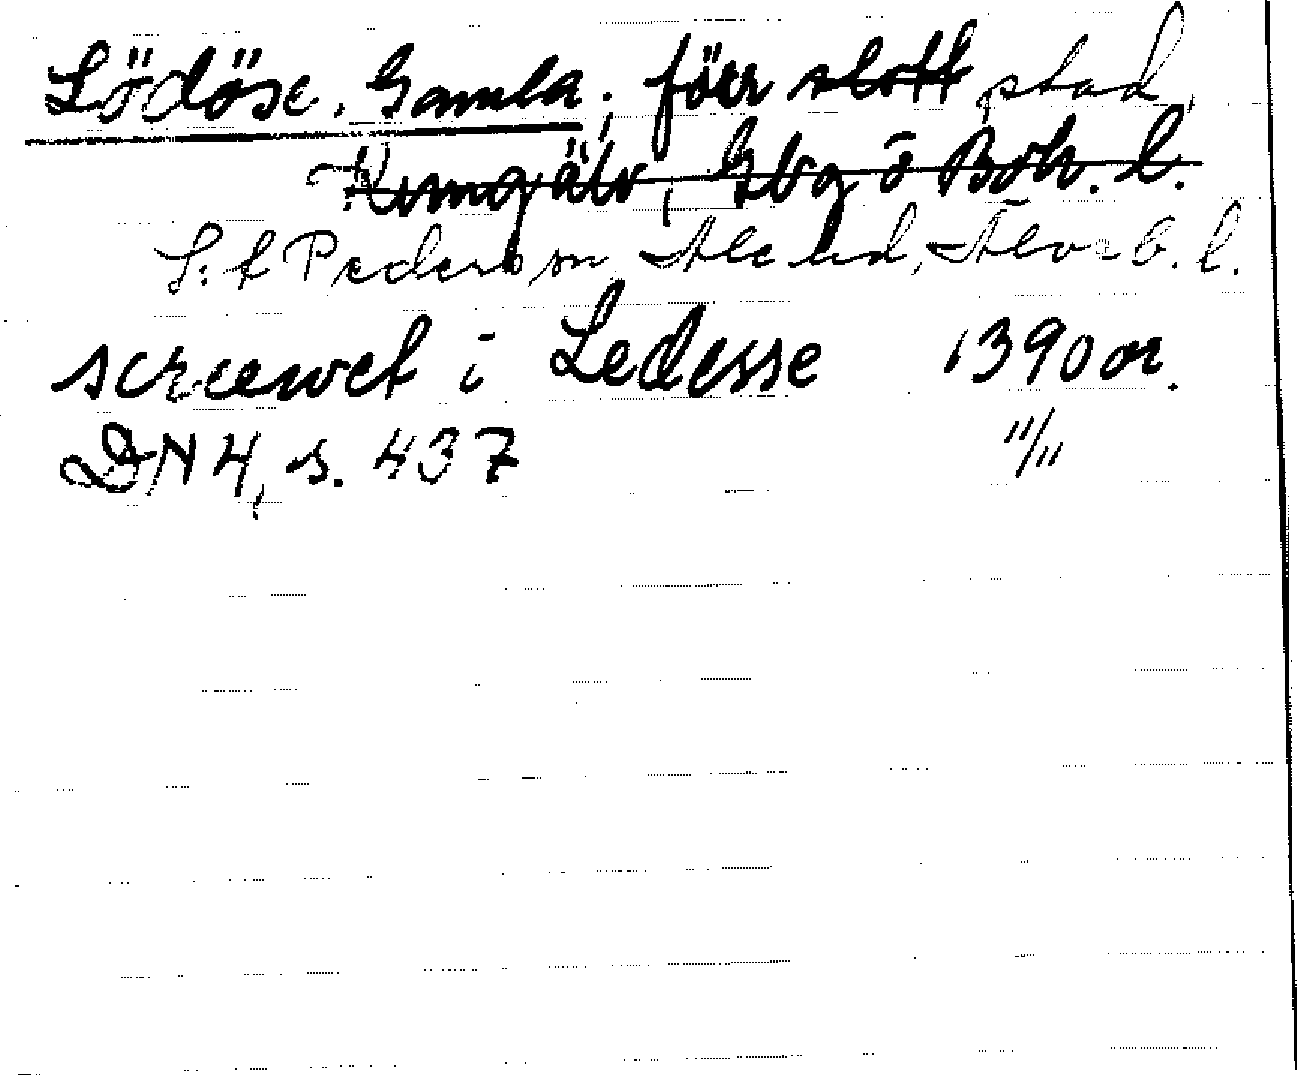 Lödöse, Gamla, förr slott stad,
Kungälv, Gbg o Boh. l.
S:t Peders sn Ale hd, Älvsb. l.
screewet i Ledesse 1390 or.
DN 4, s. 437 11/11